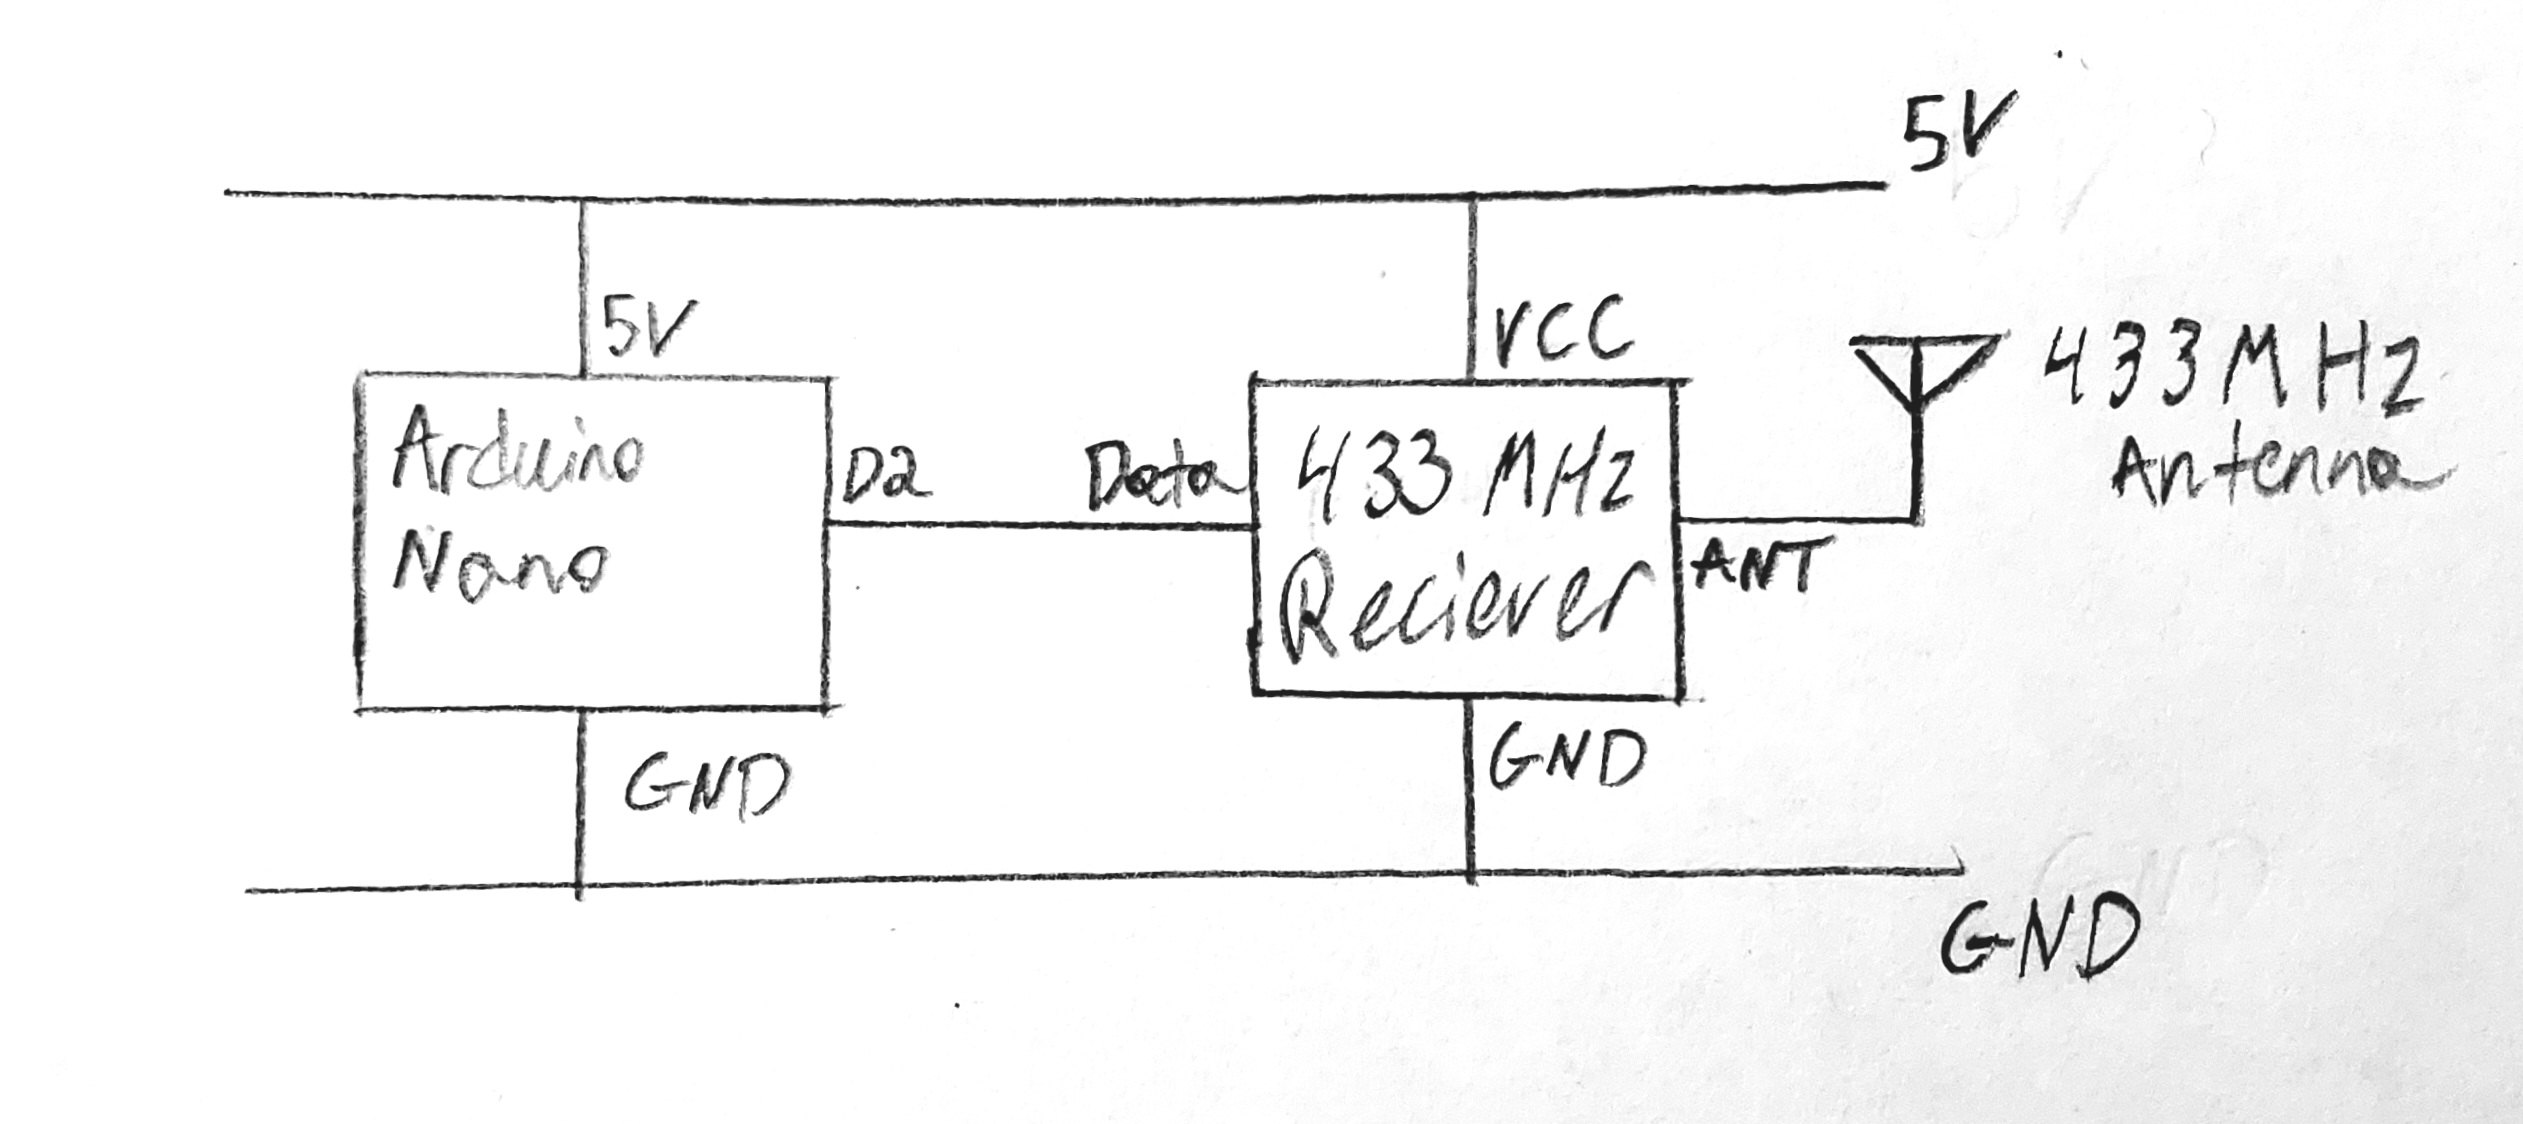 5V
5V
VCC
433MHz
Antenna
Arduino
Nano
D2
Data
433 MHz
Reciever
ANT
GND
GND
GND